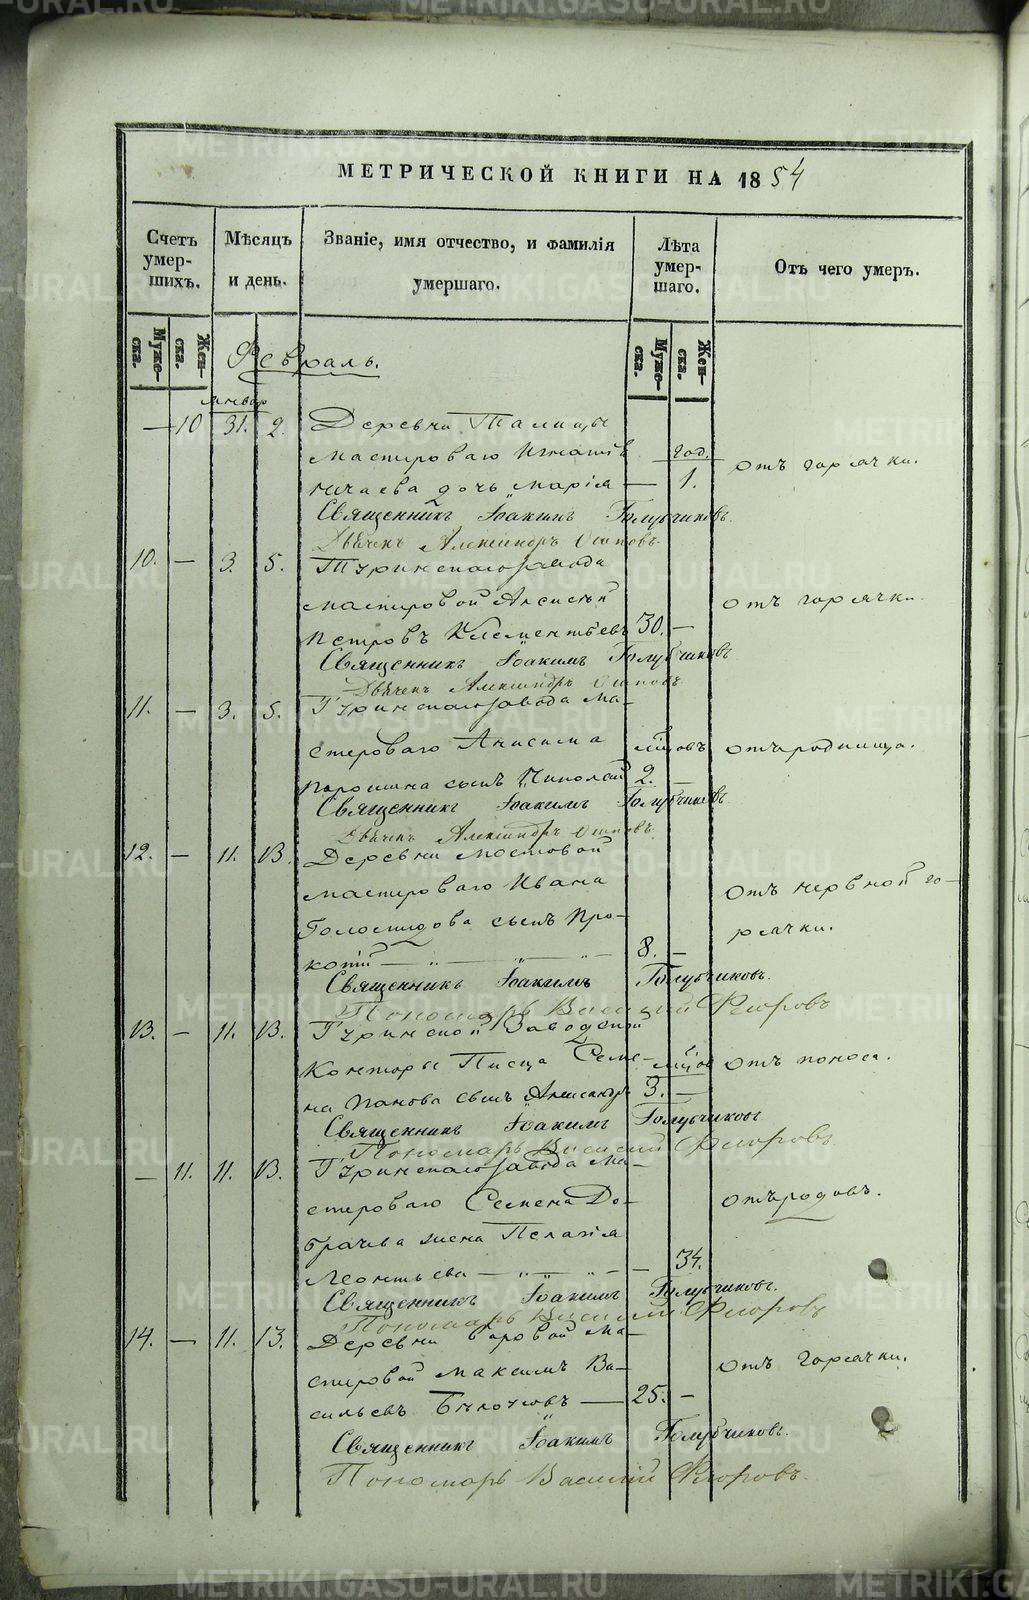 МЕТРИЧЕСКОЙ КНИГИ НА 1854
Счетъ умер-шихъ. Мѣсяцъ и день. Званіе, имя отчество, и фамилія умершаго. Лѣта умер-шаго. Отъ чего умеръ.
Муже-ска. Жен-ска. Муже-ска. Жен-ска.
Февраль.
Январ
— 10 31. 2. Деревни Талицы
мастероваго Игнатія год. отъ горячки.
Нечаева дочь Марія — 1.
Священникъ Іоакимъ Голубчиковъ.
Дьячекъ Александръ Осиповъ.
10. — 3. 5. Туринскаго завода
мастеровой Алексѣй отъ горячки.
Петровъ Клементьевъ 30. —
Священникъ Іоакимъ Голубчиковъ
Дьячекъ Александръ Осиповъ
11. — 3. 5. Туринскаго завода ма-
стероваго Анисима мѣсцовъ отъ родимца.
сынъ Николай 2. —
Священникъ Іоакимъ Голубчиковъ
Дьячекъ Александръ Осиповъ.
12. — 11. 13. Деревни Мостовой
мастероваго Ивана отъ нервной го-
сынъ Про- рячки.
копій — „ — „ — 8. —
Священникъ Іоакимъ Голубчиковъ.
Пономарь Василій Флоровъ
13. — 11. 13. Туринской Заводской
Конторы Писца Семе- мѣсцов отъ поноса.
на Панова сынъ Александръ 3. —
Священникъ Іоакимъ Голубчиковъ
Пономарь Василій Флоровъ
— 11. 11. 13. Туринскаго завода ма-
стероваго Семена До- отъ родовъ.
брачева жена Пелагія
Леонтьева — „ — „ — 34.
Священникъ Іоакимъ Голубчиковъ.
Пономарь Василій Флоровъ
14. — 11. 13. Деревни Боровой ма-
стеровой Максимъ Ва- отъ горячки.
сильевъ — 25. —
Священникъ Іоакимъ Голубчиковъ.
Пономарь Василій Флоровъ.
METRIKI.GASO-URAL.RU